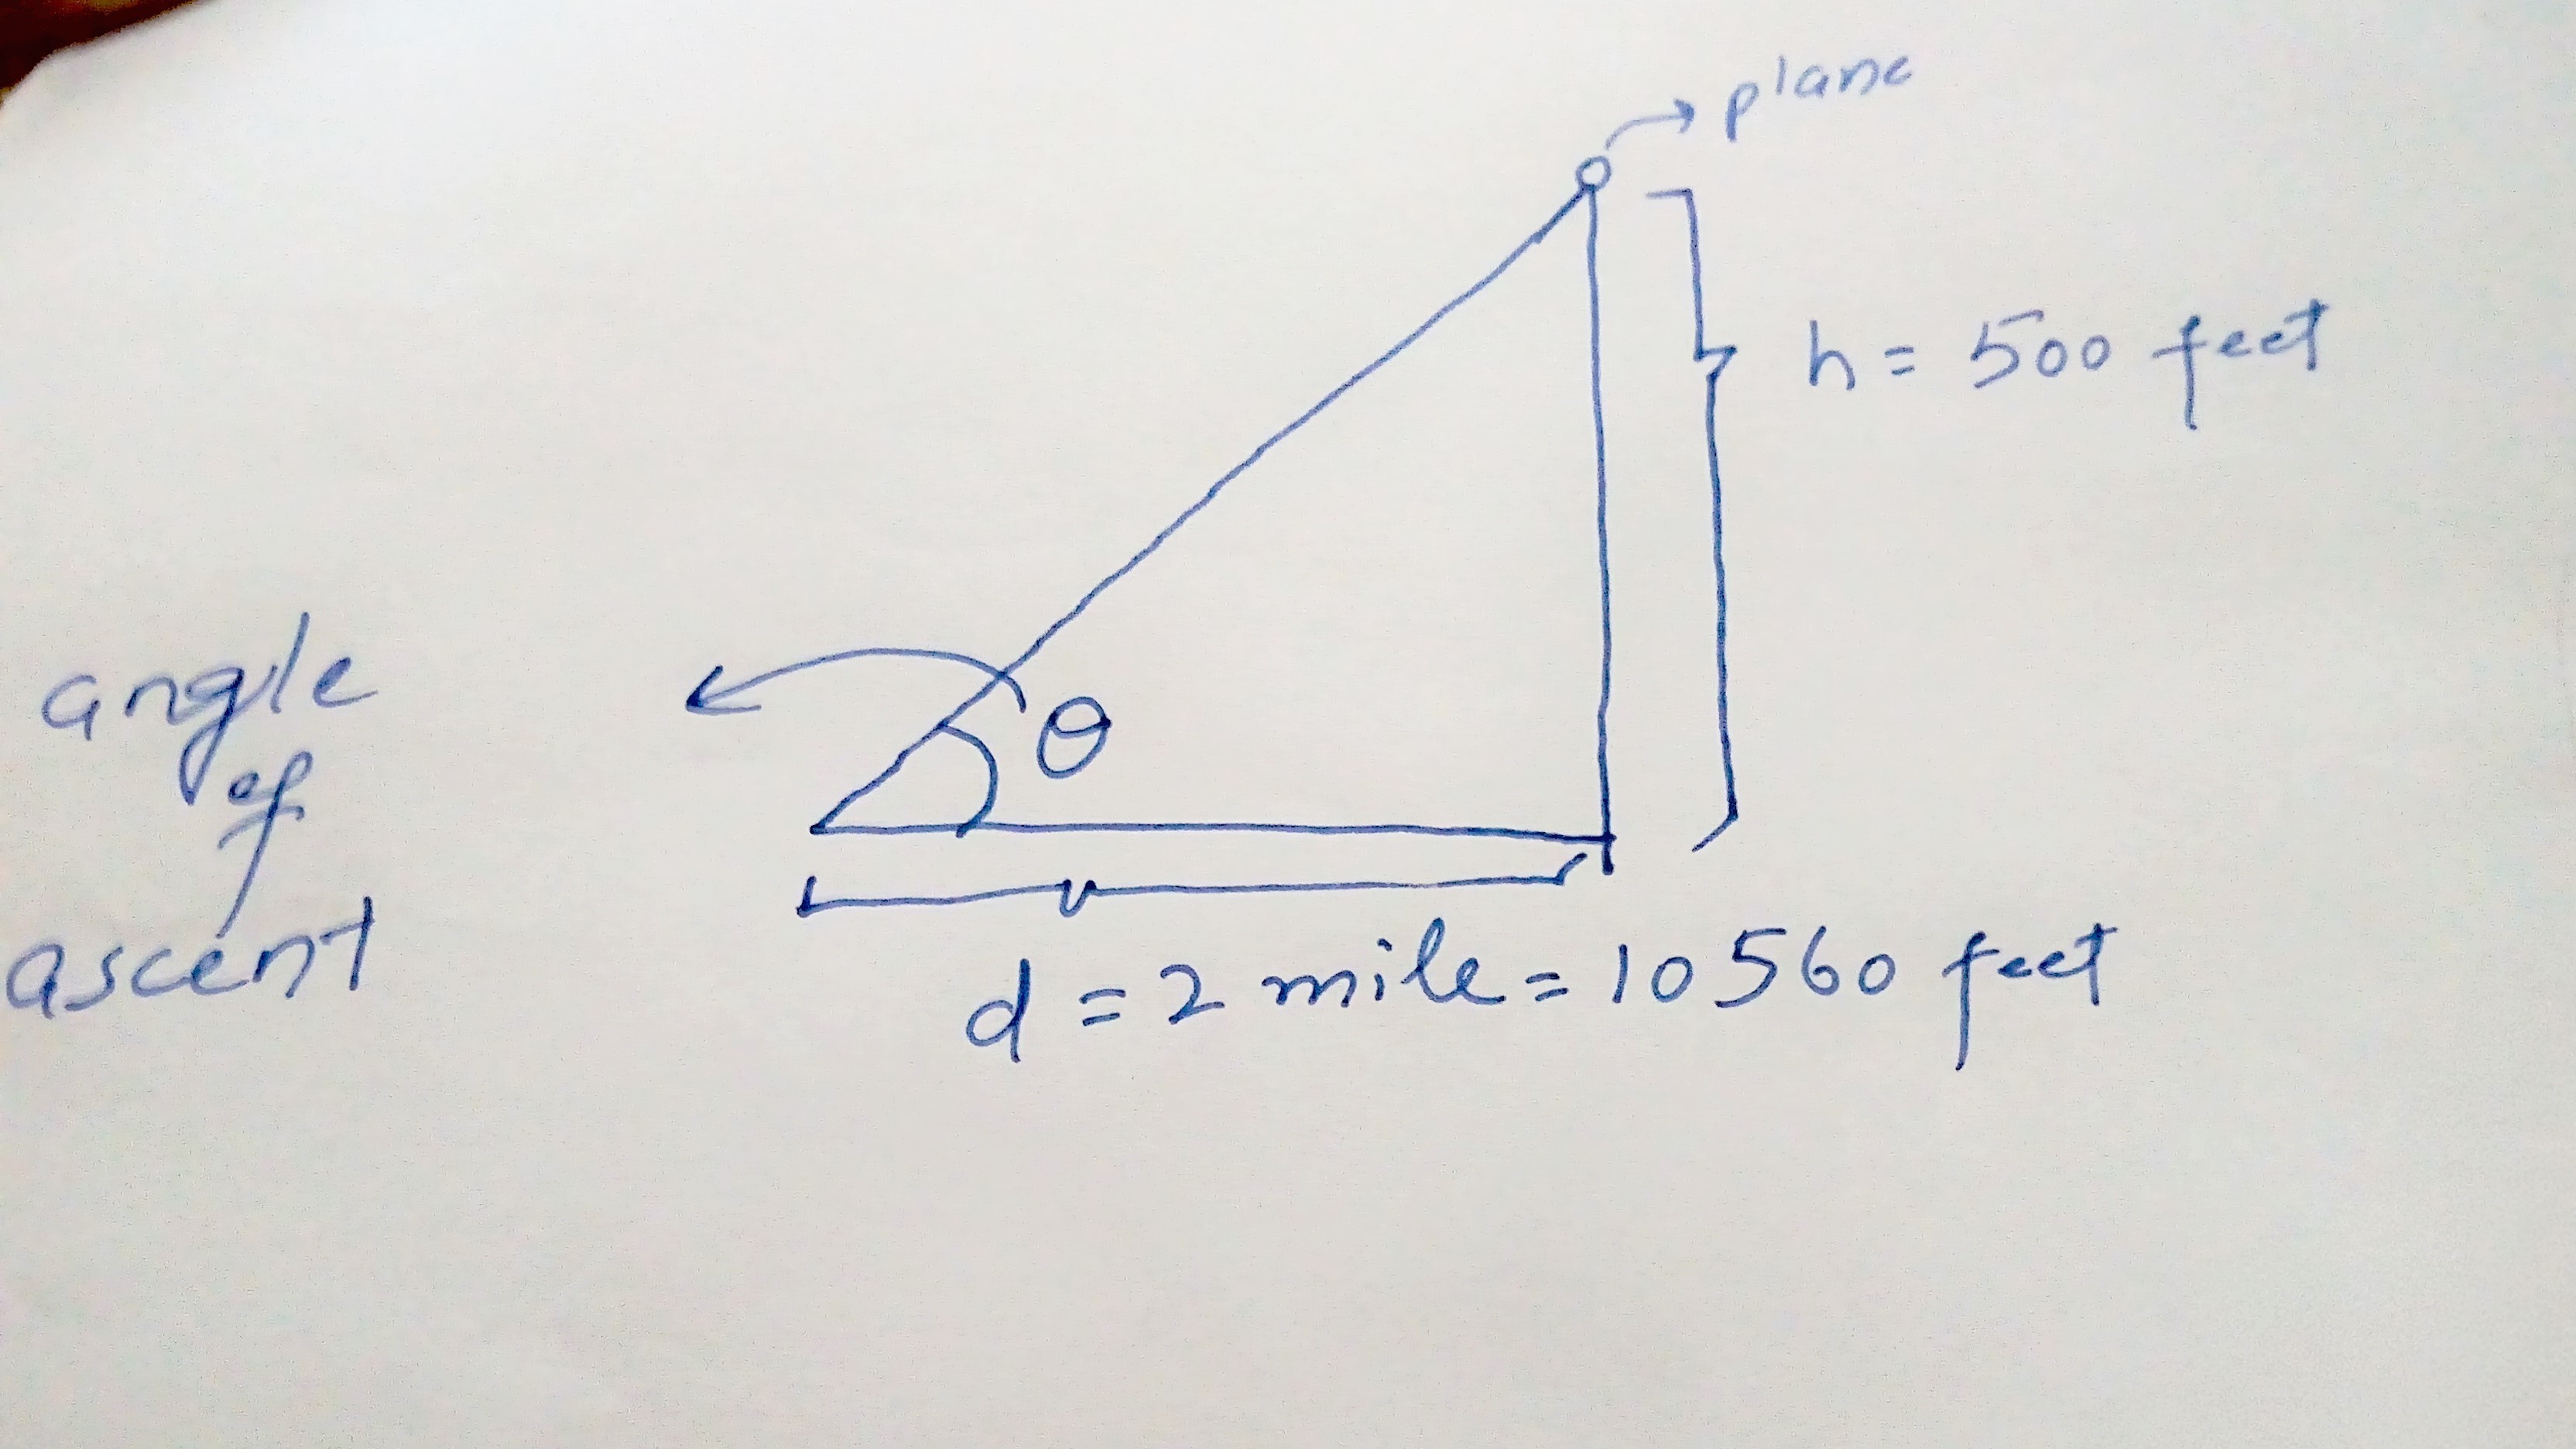 plane
h = 500 feet
θ
angle
of
ascent
d = 2 mile = 10560 feet